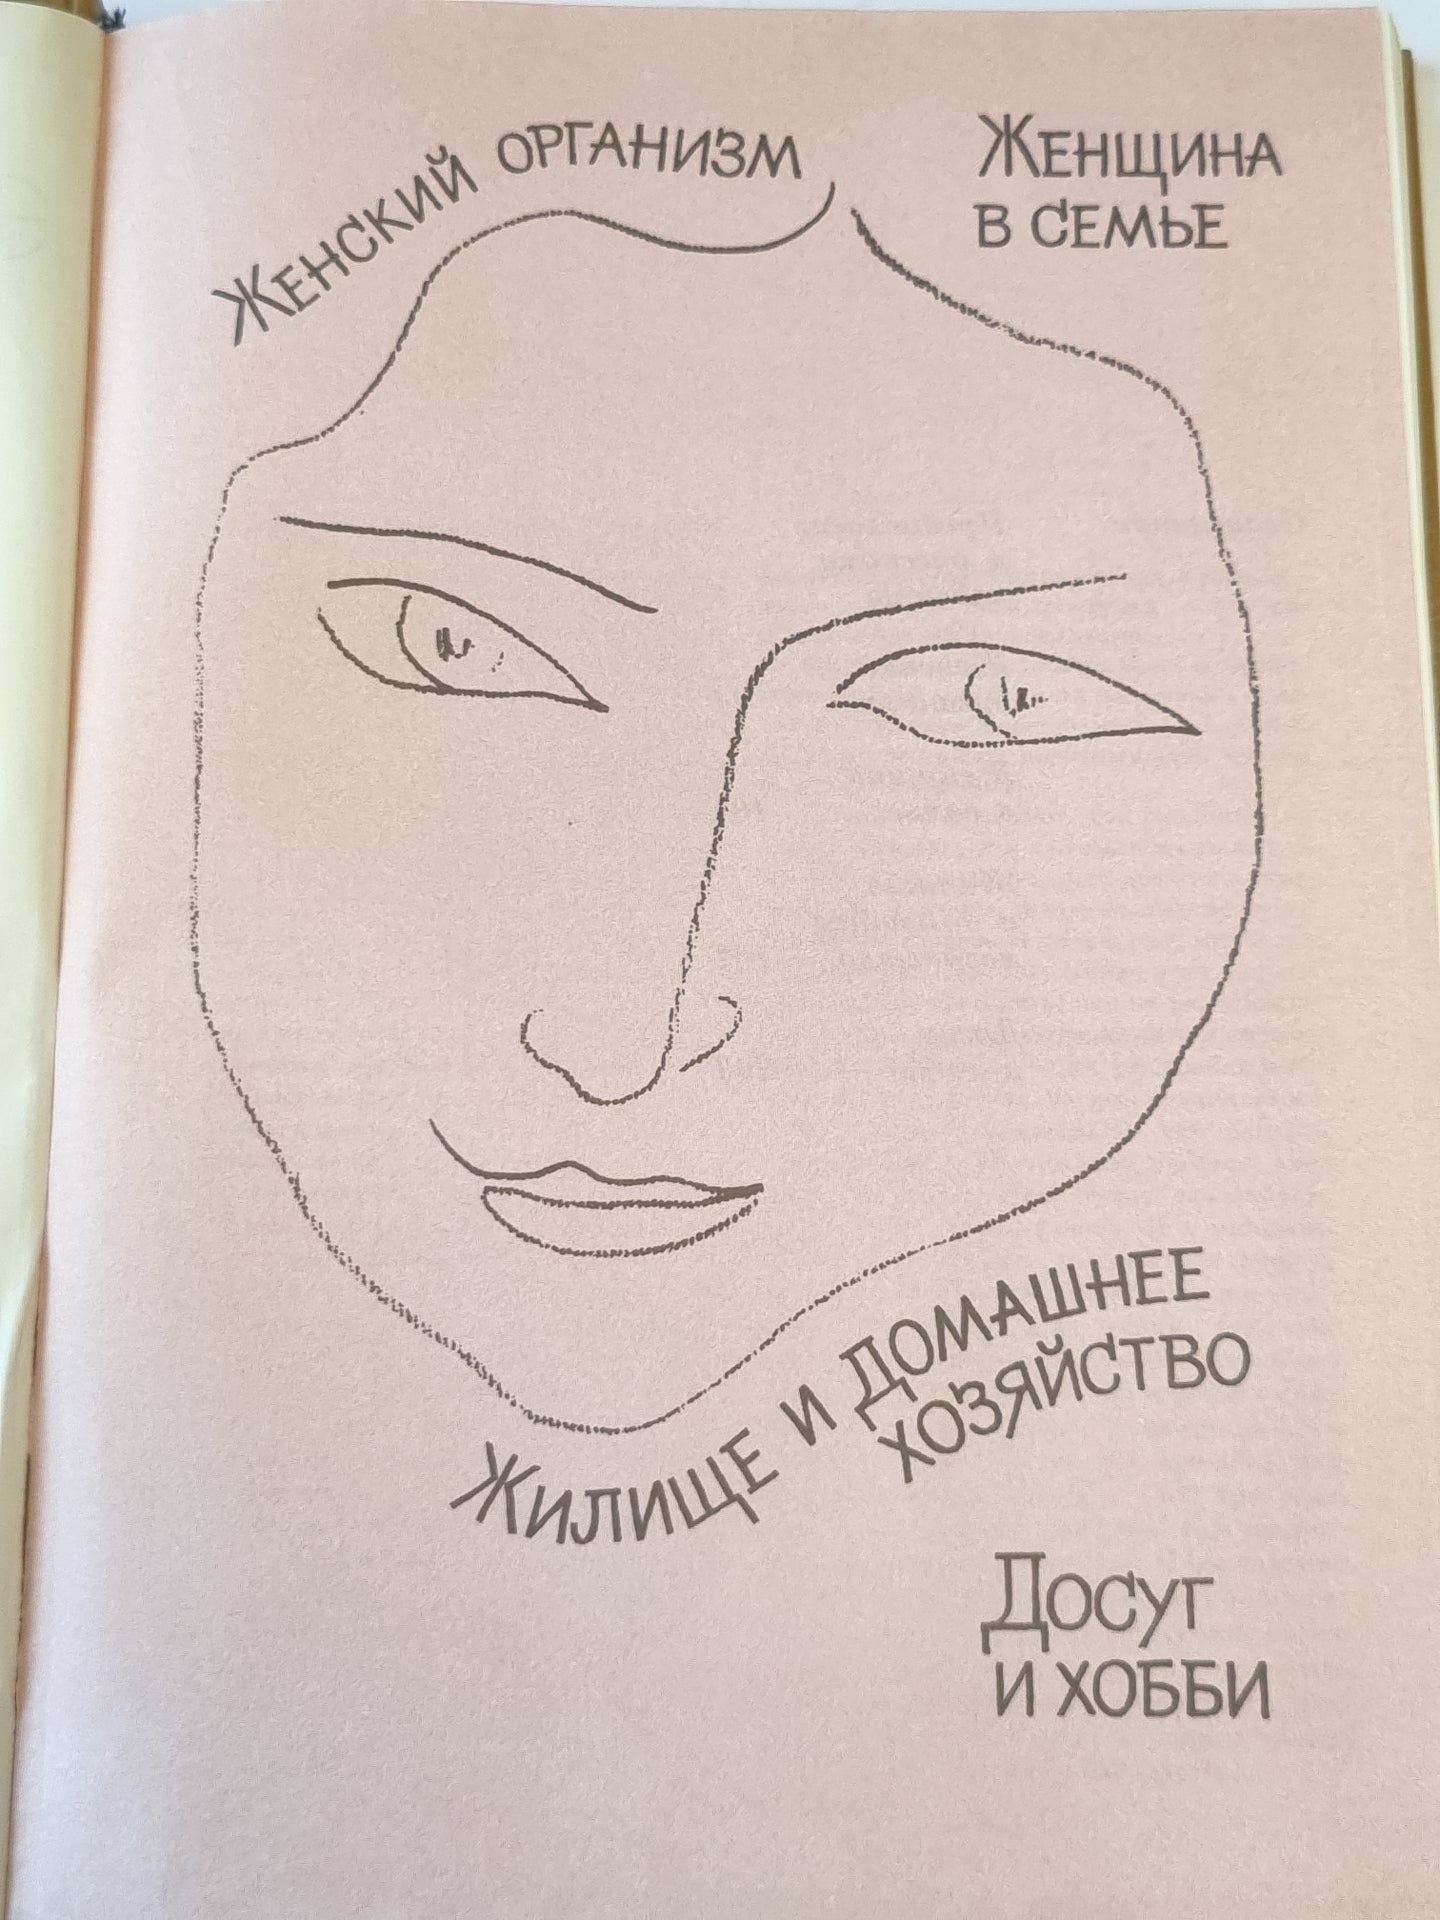 Женский организм
Женщина
в семье
Жилище и домашнее
хозяйство
Досуг
и хобби